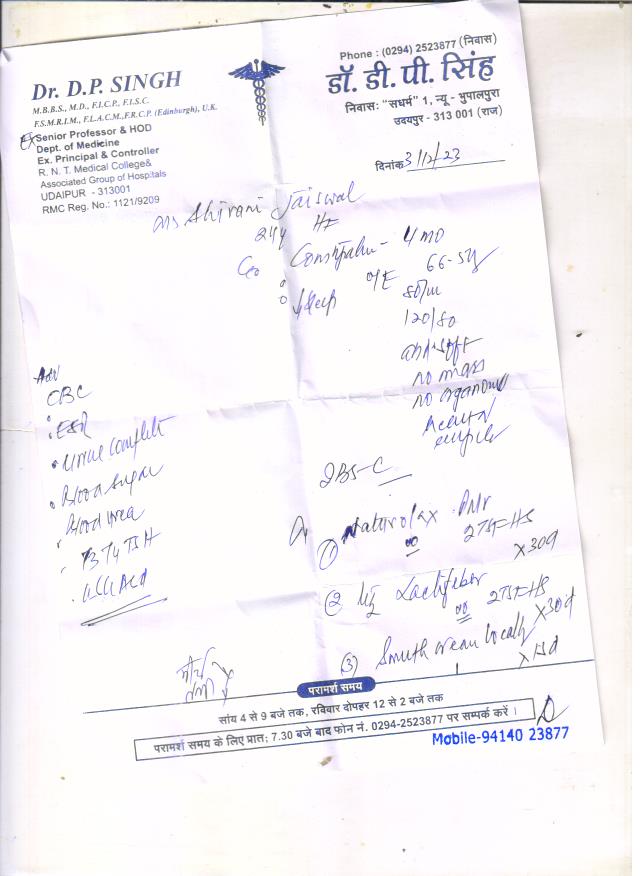 Dr. D.P. SINGH
M.B.B.S., M.D., F.I.C.P., F.I.S.C.
F.S.M.R.I.M., F.L.A.C.M.,F.R.C.P. (Edinburgh), U.K.
Ex Senior Professor & HOD
Dept. of Medicine
Ex. Principal & Controller
R. N. T. Medical College&
Associated Group of Hospitals
UDAIPUR - 313001
RMC Reg. No.: 1121/9209
Phone : (0294) 2523877 (निवास)
डॉ. डी. पी. सिंह
निवासः "सधर्म" 1, न्यू - भुपालपुरा
उदयपुर - 313 001 (राज)
दिनांक 3/12/23
Ms Shivani Jaiswal
24y
C/o Constipation - 4 mo
↓ Sleep
O/E 66-5
80/m
120/80
abd soft
no mass
no organo
Adv
CBC
ESR
Urine complete
Blood Sugar
Blood Urea
T3 T4 TSH
Uric Acid
IBS-C
(1) Naturolax
2TSF HS
X 30d
(2) Lactifiber 2TSF HS
X 30d
(3) Smuth cream locally
परामर्श समय
सांय 4 से 9 बजे तक, रविवार दोपहर 12 से 2 बजे तक
परामर्श समय के लिए प्रात; 7.30 बजे बाद फोन नं. 0294-2523877 पर सम्पर्क करें ।
Mobile-94140 23877